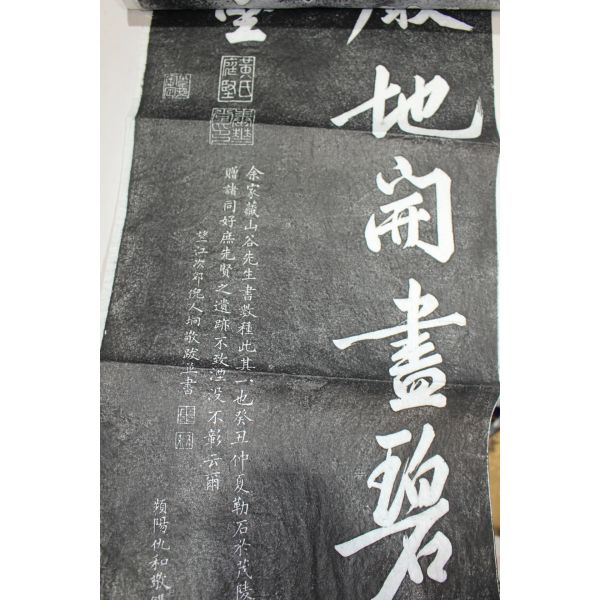 地開畫碧
堅
黃氏庭堅
余家藏山谷先生書數種此其一也癸丑仲夏勒石於茂陵
贈諸同好庶先賢之遺跡不致湮没不彰云爾
望江次郇倪人垧敬跋並書
頻陽仇和敬